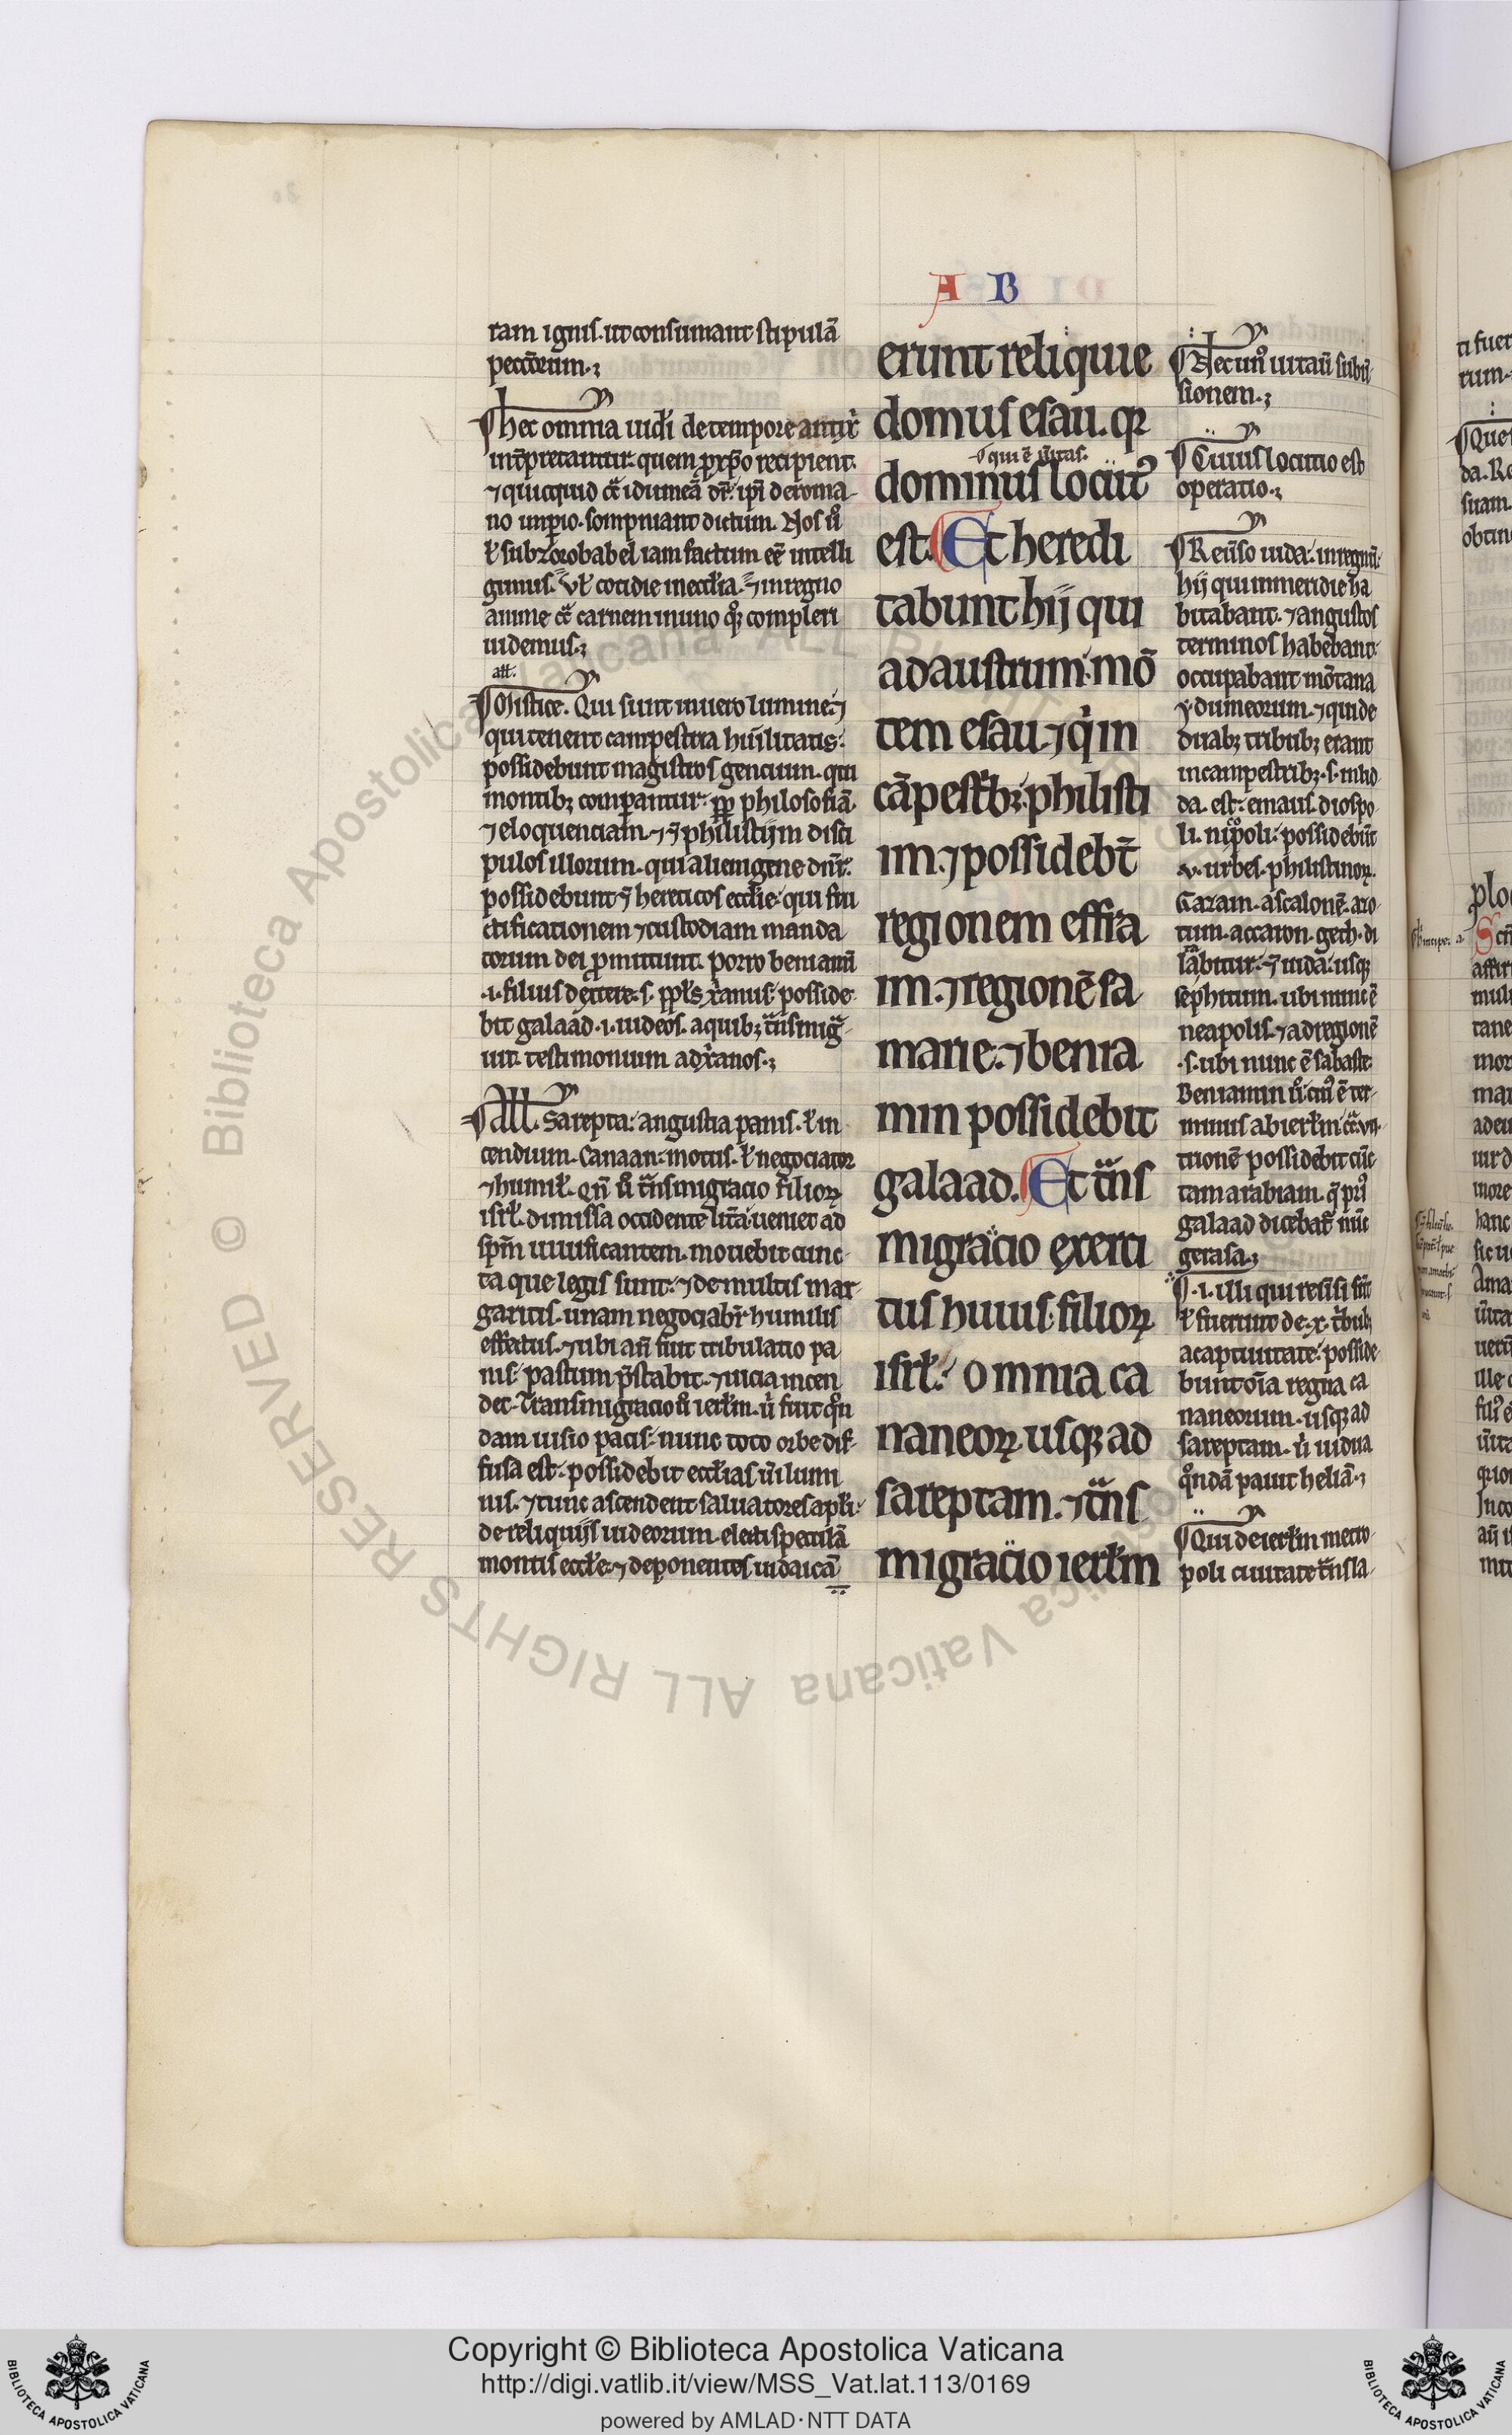 A B
tam ignis. ut consumant stipulā
pecc̄orum.;
hec omnia iudi̾ de tempore antix̾
int̄pretantur. quem p̄ xp̄o recipient.
⁊ quicquid ct̄ idumeā dr̄. ip̄i de roma-
no imp̄io. sompniant dictum. Nos u̾
ł sub zorobabel iam factum eē intelli
gimus. Vł cotidie in eccłia. ⁊ in regno
anime ct̄ carnem in uno q̊ꝫ compleri
uidemus.;
all.
Mistice. Qui sunt in uero lumine. ⁊
qui tenent campestria humilitatis.
possidebunt magistros gencium. qui
montibꝫ compantur. ꝓp philosofiā.
⁊ eloquenciam. ⁊ ⁊ philistijm disci
pulos illorum. qui alienigene dn̄r̄.
possidebunt ⁊ hereticos eccłie. qui fru
ctificationem ⁊ custodiam manda
torum dei p̄mittunt. porro beniamī
.i. filius dextere. s. pp̄ls xr̄anus. posside-
bit galaad .i. iudeos. a quibꝫ tn̄smiḡ-
uit. testimonium ad xr̄anos.;
All. Sarepta. angustia panis. ł in
cendium. Canaan. motus. ł negociator
⁊ humił. Qn̄ u̾ tn̄smigracio filioꝝ
isrł. dimissa occidente litt̄a ueniet ad
sp̄m uiuificantem. mouebit cunc-
ta que legis sunt. ⁊ de multis mar-
garitis. unam negociabr̄. humilis
effectus. ⁊ ubi an̄ fuit tribulatio pa
nis. pastum p̄stabit. ⁊ uicia incen
det. Transmigracio u̾ ierłm. u̾ fuit q̊n
dam uisio pacis. nunc toto orbe dif-
fusa est. possidebit eccłias
nis. ⁊ tunc ascendent saluatores apłi.
de reliquijs iudeorum. electi speculā
montis eccłe. ⁊ deponentes iudaicā
erunt reliquie
domus esau. qꝛ
qui ē u̾itas.
dominus locutꝰ
est. Et heredi
tabunt hij qui
ad austrum. mō
tem esau. ⁊ q̾ in
cāpestrbꝫ. philisti
im. ⁊ possidebt̄
regionem effra
im. ⁊ regionē sa
marie. ⁊ benia
min possidebit
galaad. Et tn̄s
migracio exerci
tus huius. filioꝝ
isrł. omnia ca
naneoꝝ. usqꝫ ad
sareptam. ⁊ tn̄s
migracio ierłm
Nec uituū
sionem.;
Cuius locutio est
operatio.;
Reu̾so iuda. in regnū.
hij qui in meridie ha
bitabant. ⁊ angustos
terminos habebant.
occupabant mōtana
ydumeorum. ⁊ qui de
duabꝫ tribubꝫ erant
in campestribꝫ. s. in lid
da. est. emaus. diospo
li. possidebūt
.v. urbes. philistinoꝝ.
Gazam. ascalonē. azo
tum. accaron. gech. di
latabitur. ⁊ iuda. usqꝫ
sephitum. ubi nunc ē
neapolis. ⁊ ad regionē
.s. ubi nunc ē sabaste.
Beniamin u̾. cuiꝰ ē ter-
minus ab ierłm ct̄
trionē possidebit cūc
tam arabiam. q̄ priꝰ
galaad dicebat̾. nūc
gerasa.;
.i. illi qui
ł fuerunt de .x. tribubꝫ
a captiuitate. posside-
bunt oīa regna ca
naneorum. usqꝫ ad
sareptam. u̾ uidua
q̊ndā pauit heliā.;
Qui de ierłm metro-
poli ciuitate tn̄sla-
Copyright © Biblioteca Apostolica Vaticana
http://digi.vatlib.it/view/MSS_Vat.lat.113/0169
powered by AMLAD·NTT DATA